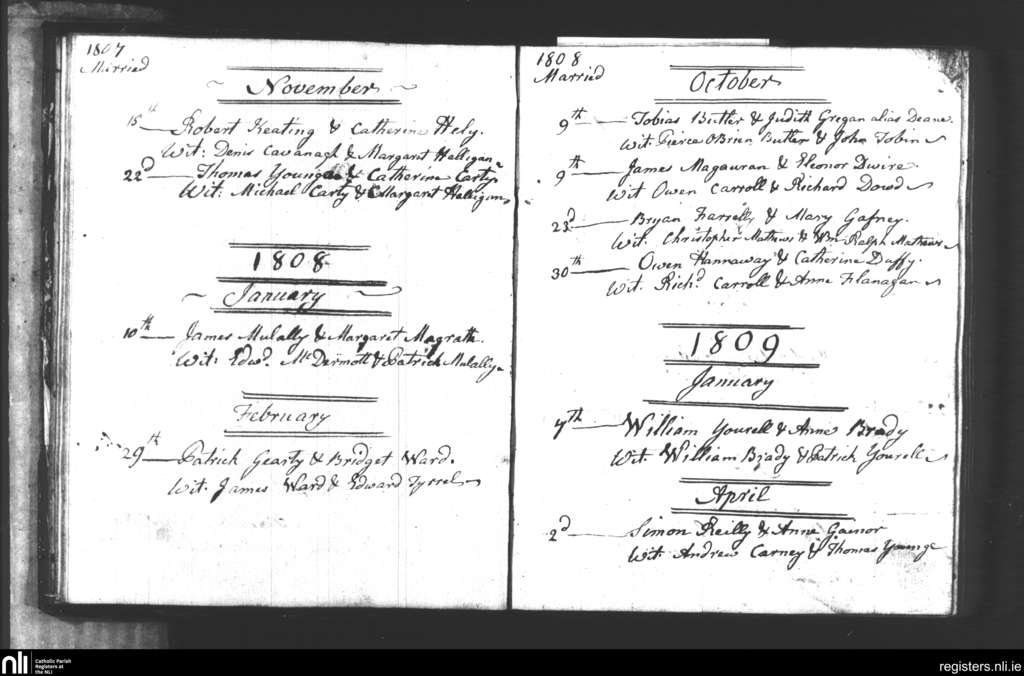 1807
Married
November
15th Robert Keating & Catherine Hely.
Wit: Denis Cavanagh & Margaret Halligan
22d Thomas Young & Catherine Carty
Wit: Michael Carty & Margaret Halligan
1808
January
10th James Mulally & Margaret Magrath.
Wit: Edwd. McDermott & Patrick Mulally
February
29th Patrick Gearty & Bridget Ward.
Wit. James Ward & Edward Tyrrel
1808
Married
October
9th Tobias Butler & Judith Gregan alias Deane.
Wit. Pierce OBrien Butler & John Tobin
9th James Magauran & Eleonor Dwire
Wit Owen Carroll & Richard Dowd
23d Bryan Farrelly & Mary Gafney.
Wit. Christopher Mathews & Wm Ralph Mathews
30th Owen Hannaway & Catherine Duffy.
Wit. Richd. Carroll & Anne Flanagan
1809
January
7th William Yourell & Anne Brady
Wit. William Brady & Patrick Yourell
April
2d Simon Reilly & Anne Gainor
Wit: Andrew Carney & Thomas Young
nli
Catholic Parish
Registers at
the NLI
registers.nli.ie